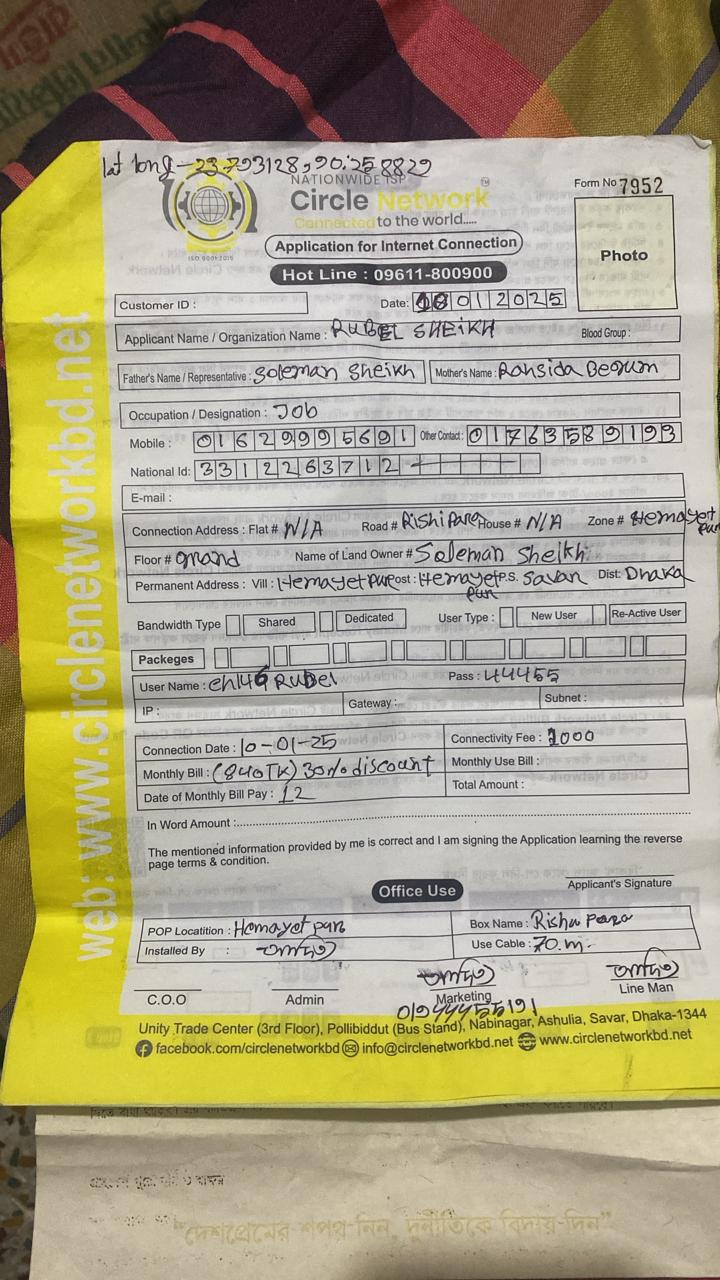 lat long - 23.793128, 90.258829
NATIONWIDE ISP
Circle Network
TM
Connected to the world.....
ISO 9001:2015
Form No 7952
Photo
Application for Internet Connection
Hot Line : 09611-800900
Customer ID :
Date: 10012025
Applicant Name / Organization Name : RUBEL SHEIKH Blood Group :
Father's Name / Representative : Soleman Sheikh Mother's Name : Rahsida Begum
Occupation / Designation : Job
Mobile : 01629995691 Other Contact : 01763589193
National Id: 3312263712
E-mail :
Connection Address : Flat # N/A Road # Rishi Para House # N/A Zone # Hemayet Pur
Floor # Grand Name of Land Owner # Soleman Sheikh
Permanent Address : Vill : Hemayet Pur Post : Hemayet Pur P.S. Savar Dist: Dhaka
Bandwidth Type Shared Dedicated User Type : New User Re-Active User
Packeges
User Name : ch146 Rubel Pass : 44455
IP : Gateway : Subnet :
Connection Date : 10-01-25 Connectivity Fee : 1000
Monthly Bill : (840TK) 30% discount Monthly Use Bill :
Date of Monthly Bill Pay : 12 Total Amount :
In Word Amount :
The mentioned information provided by me is correct and I am signing the Application learning the reverse
page terms & condition.
Applicant's Signature
Office Use
POP Locatition : Hemayet pur Box Name : Rishi Para
Installed By : Use Cable : 70.m.
C.O.O Admin Marketing Line Man
01944455191
Unity Trade Center (3rd Floor), Pollibiddut (Bus Stand), Nabinagar, Ashulia, Savar, Dhaka-1344
facebook.com/circlenetworkbd info@circlenetworkbd.net www.circlenetworkbd.net
web: www.circlenetworkbd.net
"দেশপ্রেমের শপথ নিন, দুর্নীতিকে বিদায় দিন"